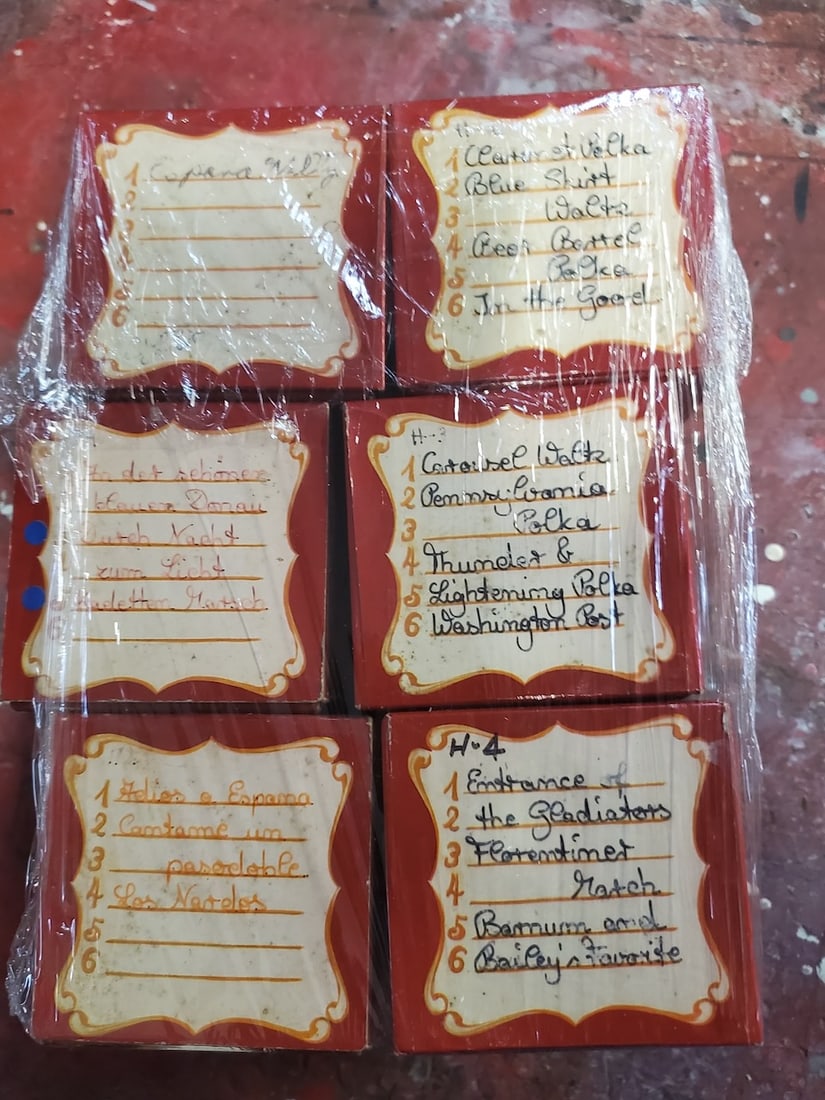 1 Espana
2
3
4
5
6
1 Clarinet Polka
2 Blue Shirt
3 Waltz
4 Beer Barrel
5 Polka
6 In the Good
An der schönen
blauen Donau
Durch Nacht
zum Licht
Kadetten Marsch
6
H-3
1 Carousel Waltz
2 Pennsylvania
3 Polka
4 Thunder &
5 Lightening Polka
6 Washington Post
1 Adios a Espana
2 Cantame un
3 pasodoble
4 Los Nardos
5
6
H-4
1 Entrance of
2 the Gladiators
3 Florentiner
4 March
5 Barnum and
6 Bailey's Favorite